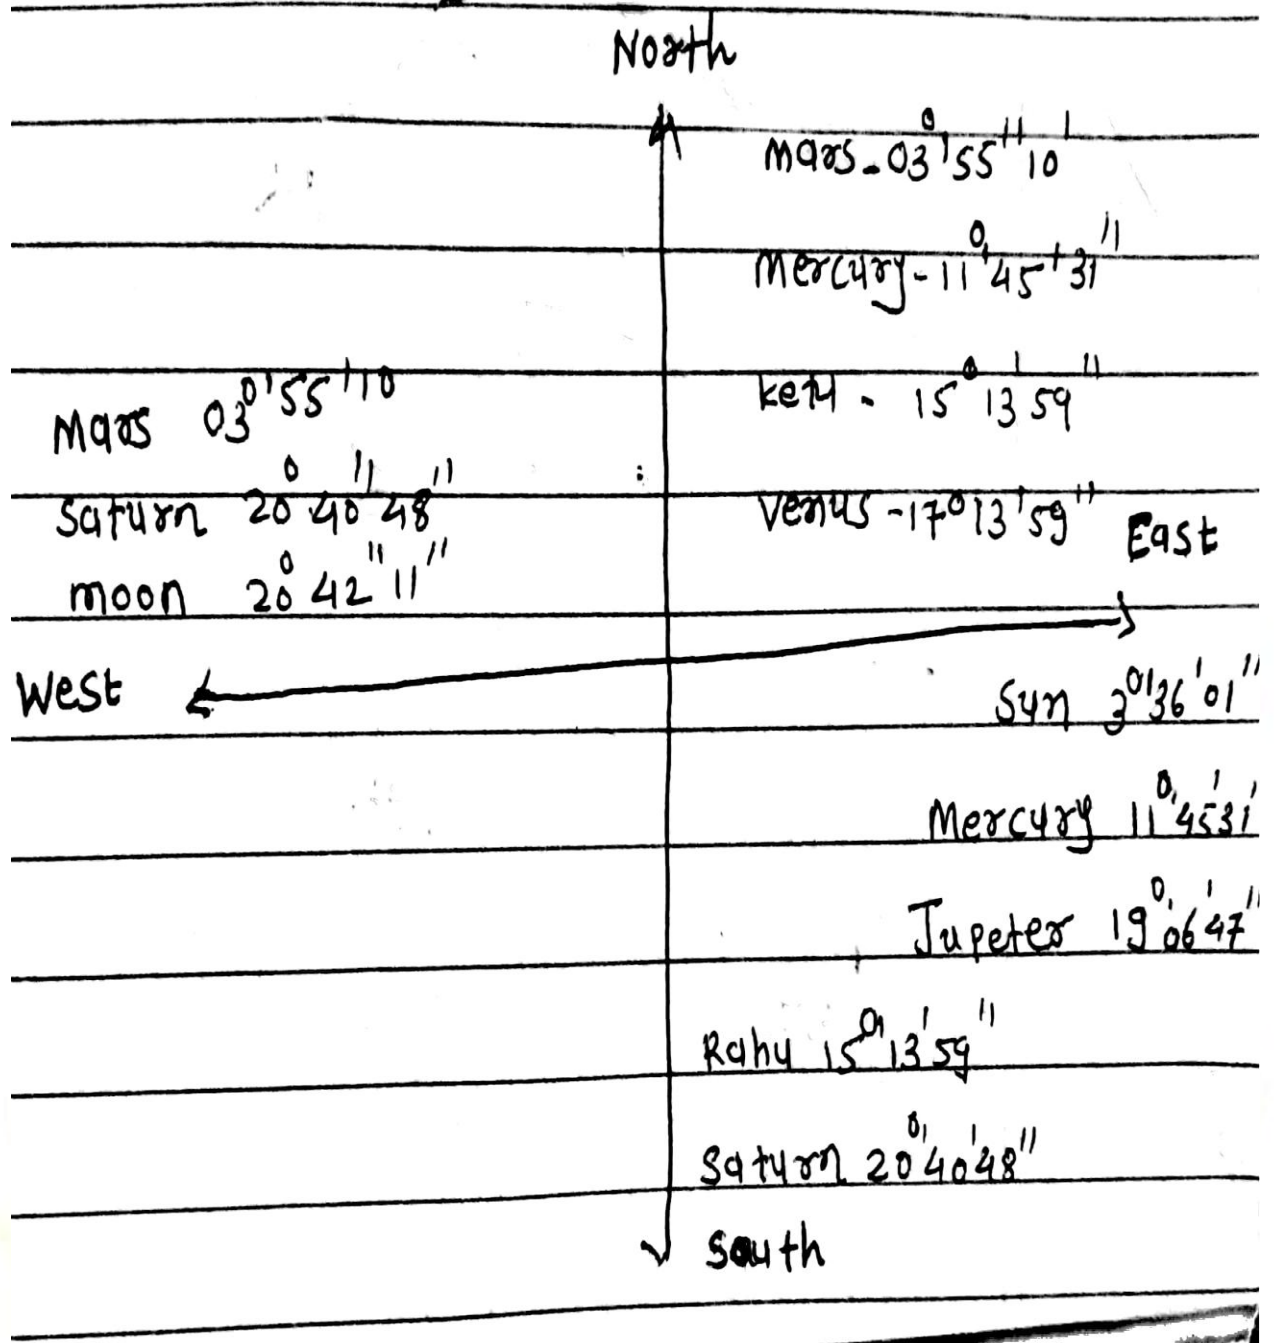 North
Mars - 03°'55''10'
Mercury - 11°'45'31''
Ketu - 15° 13' 59''
Venus - 17° 13' 59''
East
Mars 03°'55'10
Saturn 20° 40'' 48''
moon 20° 42'' 11''
West
Sun 3°'36'01''
Mercury 11°'45'31'
Jupeter 19°'06'47''
Rahu 15°'13'59''
Saturn 20°'40'48''
South